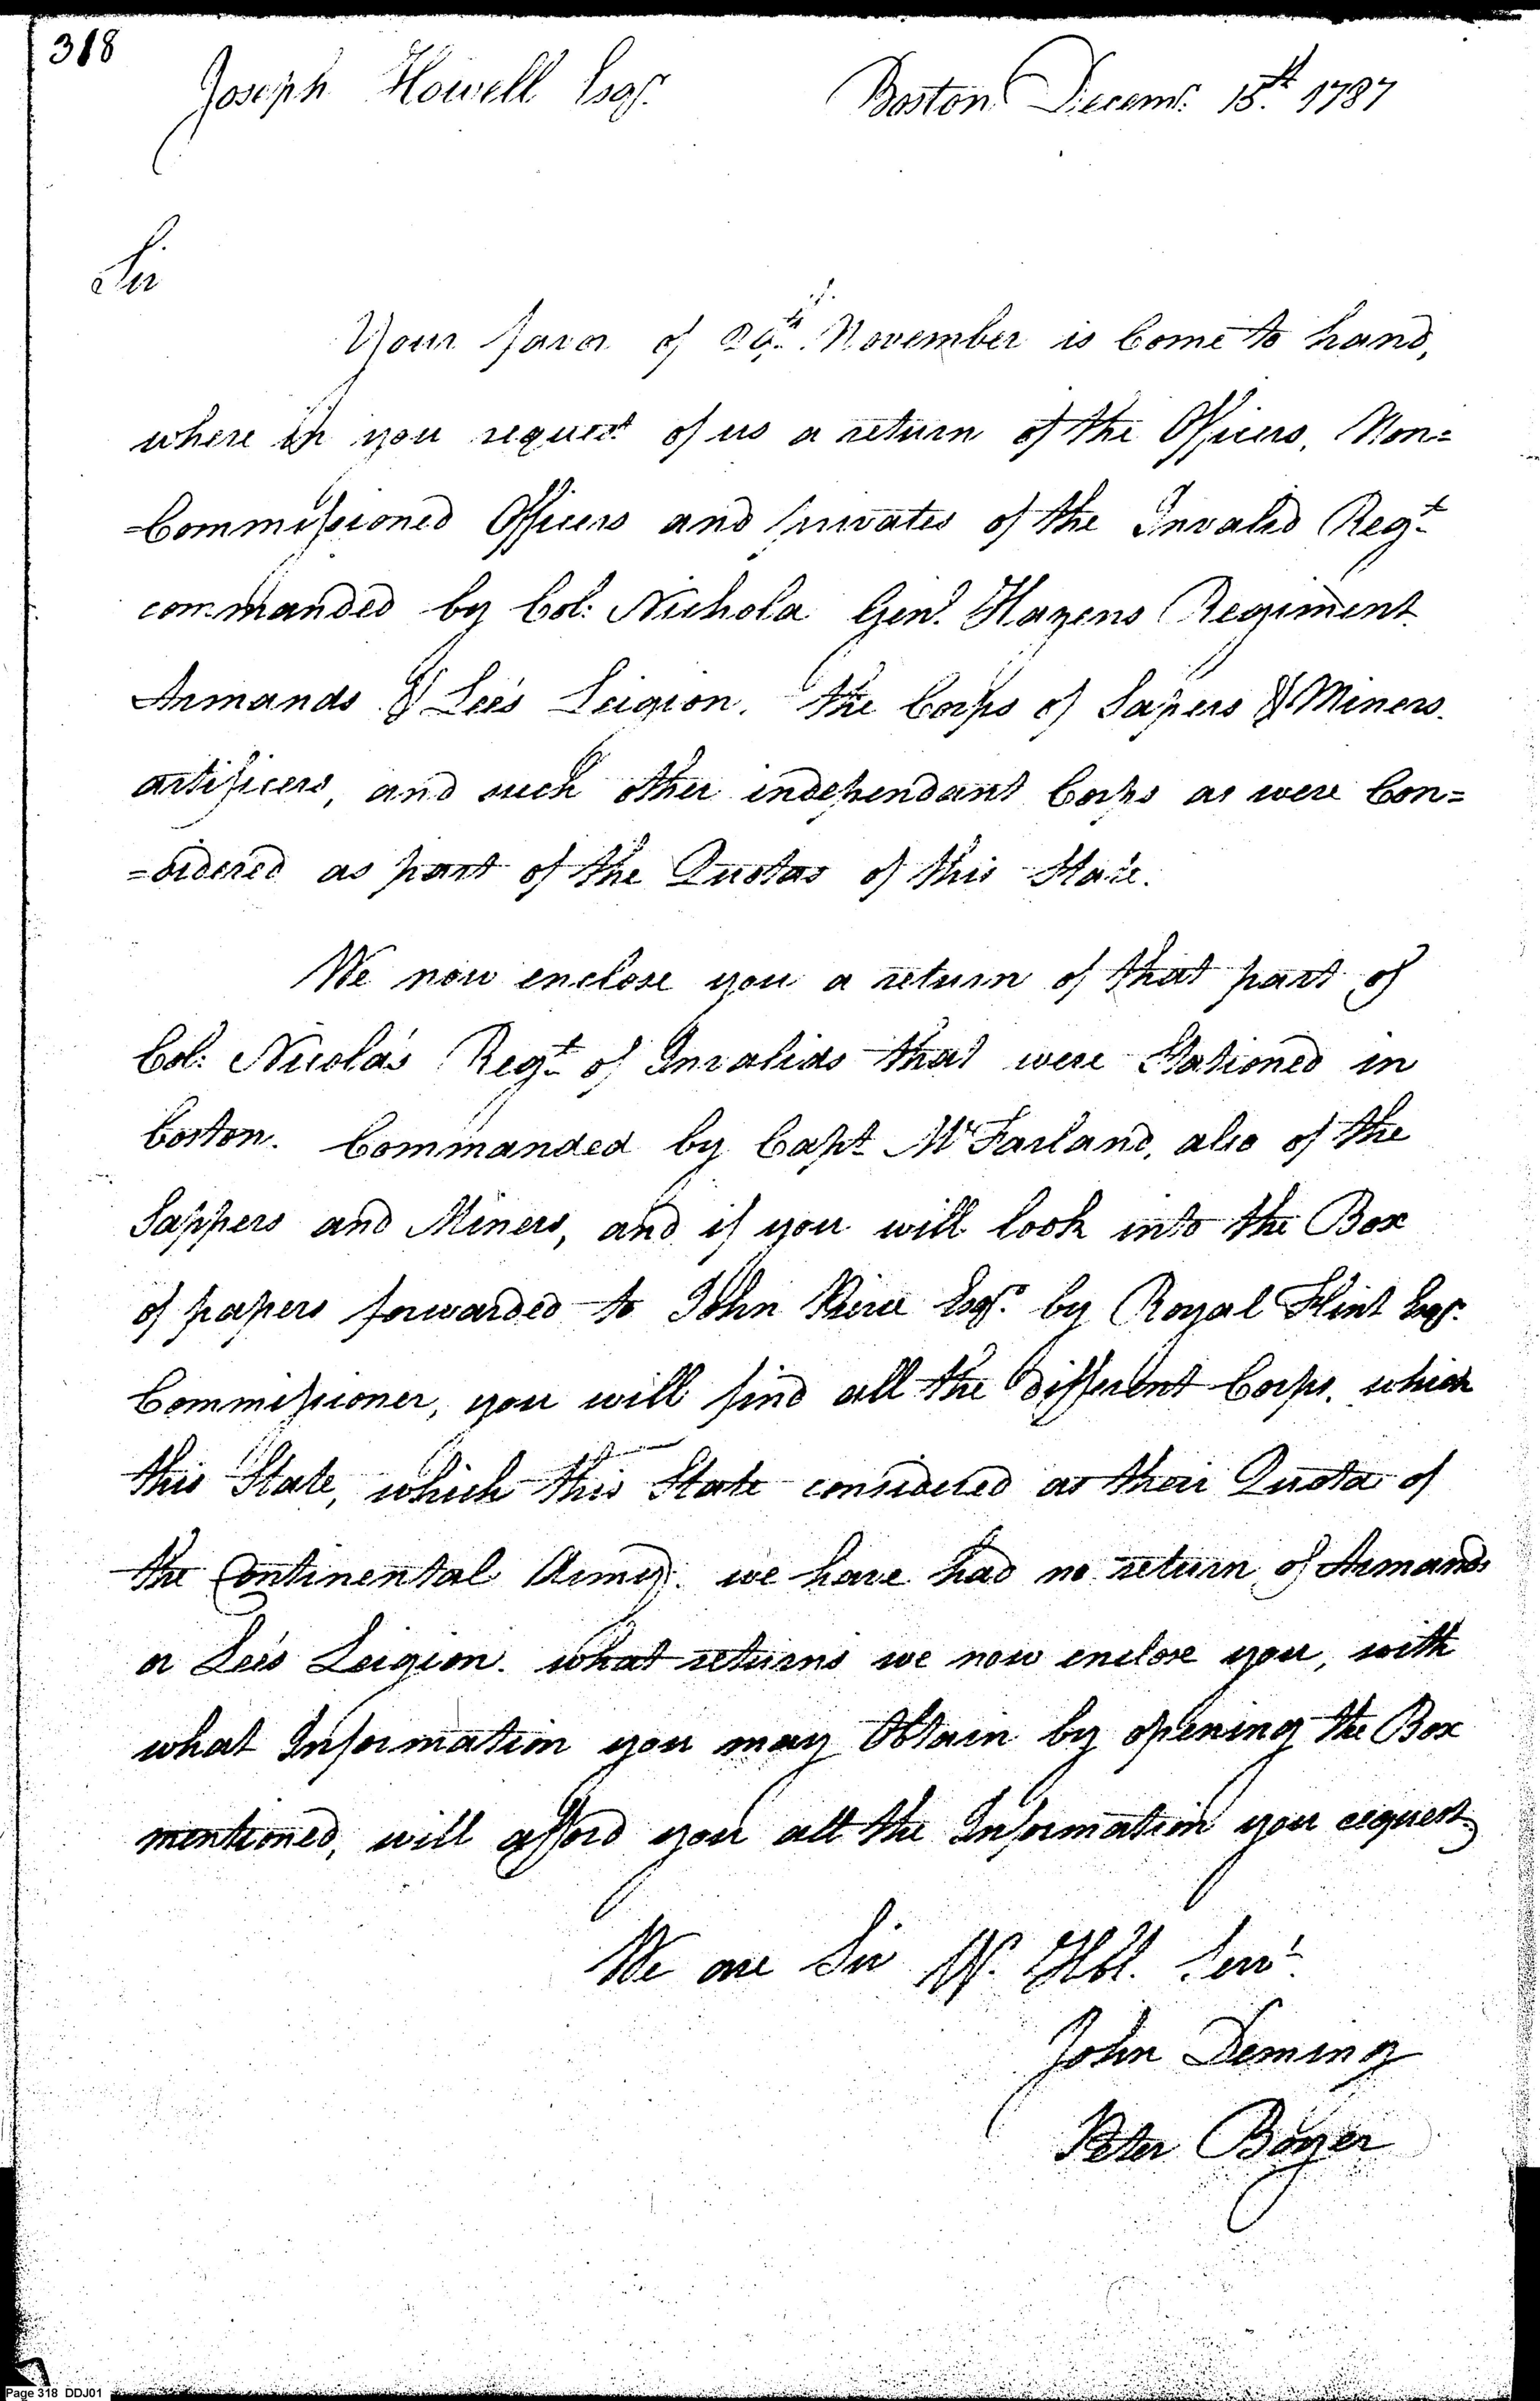 318
Joseph Howell Esqr. Boston Decemr. 15th. 1787
Sir
Your favor of November is Come to hand,
where in you request of us a return of the Officers, Non=
=Commissioned Officers and privates of the Invalid Regt
commanded by Col: Nichola Genl. Hazens Regiment
Armands & Lee's Leigion. the Corps of Sapers & Miners.
artificers, and such other independant Corps as were Con=
=sidered as part of the Quotas of this State.
We now enclose you a return of that part of
Col: Nicola's Regt of Invalids that were Stationed in
boston. Commanded by Capt McFarland, also of the
Sappers and Miners, and if you will look into the Box
of papers forwarded to John Pierce Esqr. by Royal Flint Esqr.
Commissioner, you will find all the different Corps, which
this State, which this State considered as their Quota of
the Continental Army. we have had no return of Armands
or Lee's Leigion. what returns we now enclose you, with
what Information you may Obtain by opening the Box
mentioned, will afford you all the Information you request.
We are Sir Yr. Hbl. Servt.
John Deming
Peter Boyer
Page 318 DDJ01